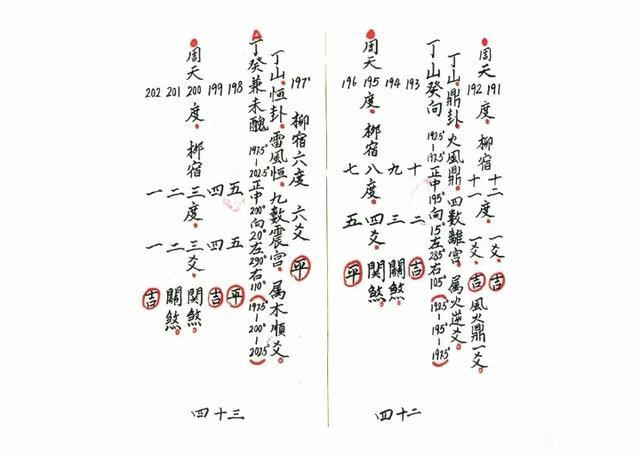 周天191 192度 柳宿十二 十一度 一爻 一爻 吉 吉 風火鼎一爻
丁山鼎卦火風鼎四數離宮屬火逆爻
丁山癸向 192.5°-197.5° 正中195°向15°左285°右105° (192.5°-195°-197.5°)
193 十 二 吉
194 九 三 關煞
周天195度 柳宿八度 四爻 関煞
196 七 五 平
四十二
197° 柳宿六度 六爻 平
丁山恒卦雷風恒九數震宮屬木順爻
丁癸兼未醜 197.5°-202.5° 正中200°向20°左290°右110° (197.5°-200°-202.5°)
198 五 五 平
199 四 四 吉
周天200度 柳宿三度 三爻 関煞
201 二 二 關煞
202 一 一 吉
四十三